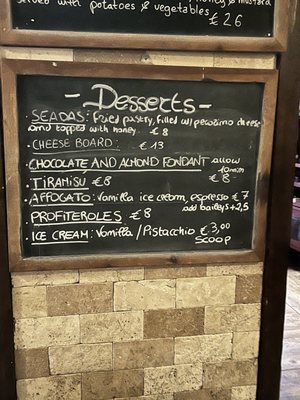 served with potatoes & vegetables
€26
- Desserts -
• SEADAS: fried pastry, filled w/ pecorino cheese
and topped with honey. €8
• CHEESE BOARD: €13
• CHOCOLATE AND ALMOND FONDANT allow
10min
€8
• TIRAMISÚ €8
• AFFOGATO: Vanilla ice cream, espresso €7
add baileys +2,5
• PROFITEROLES €8
• ICE CREAM: Vanilla/Pistacchio €3,00
SCOOP